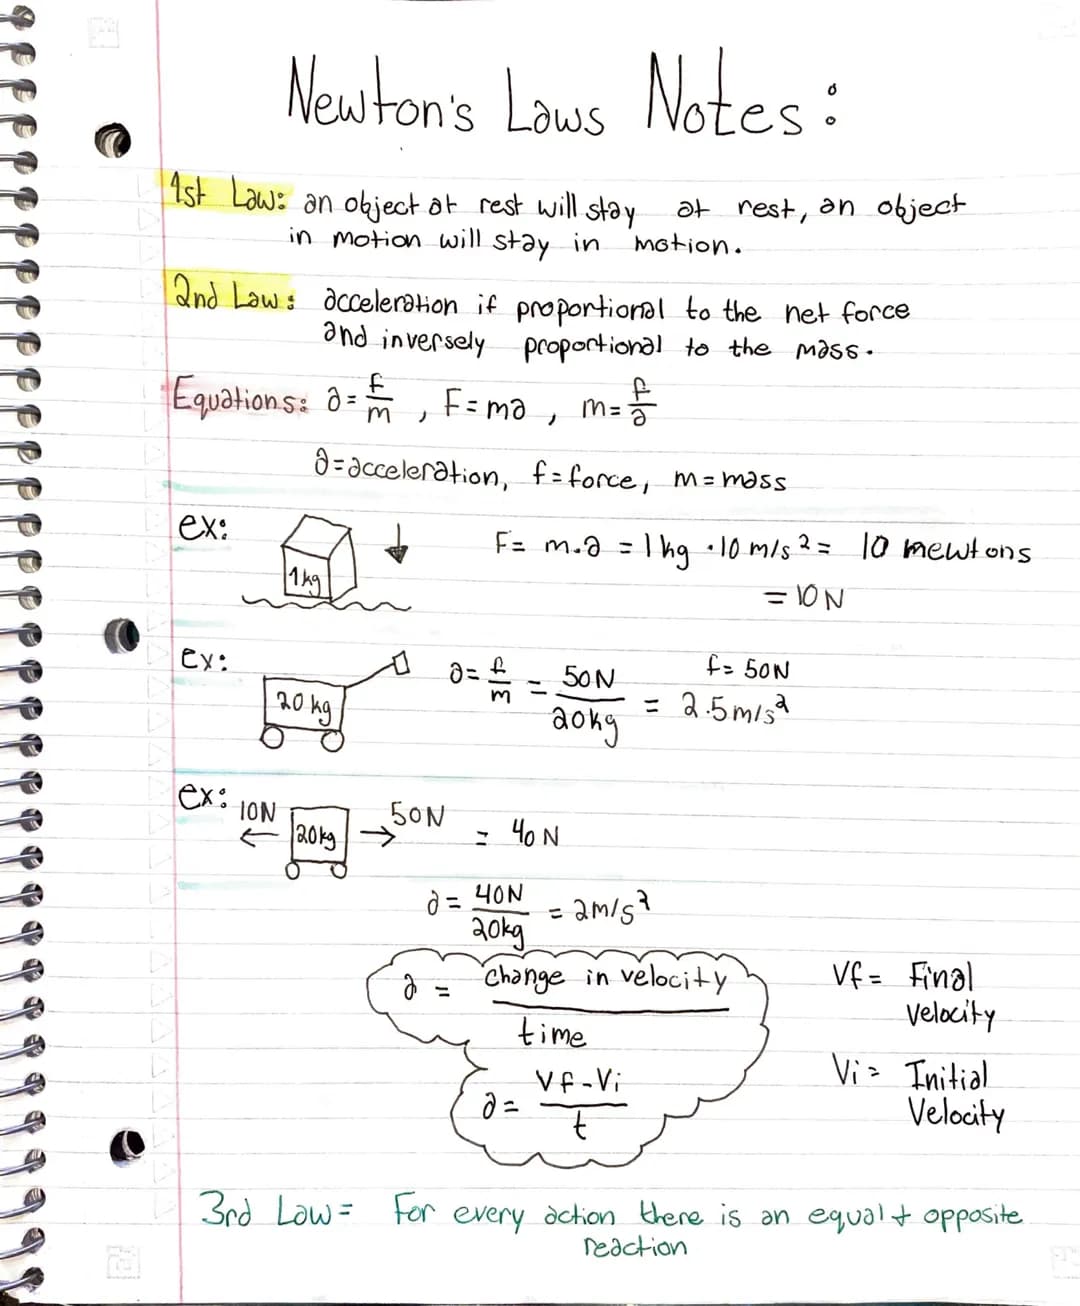 Newton's Laws Notes:
1st Law: an object at rest will stay at rest, an object
in motion will stay in motion.
2nd Law: acceleration if proportional to the net force
and inversely proportional to the mass.
Equations: a = f/m , F = ma , m = f/a
a = acceleration, f = force, m = mass
ex:
1kg
F = m.a = 1kg · 10 m/s² = 10 newtons
= 10 N
ex:
20 kg
a = f/m = 50N/20kg = 2.5m/s²
f = 50N
ex:
10N
20kg
50N
= 40 N
a = 40N/20kg = 2m/s²
a = change in velocity
time
a = Vf - Vi
t
Vf = Final
Velocity
Vi = Initial
Velocity
3rd Law = For every action there is an equal + opposite
reaction